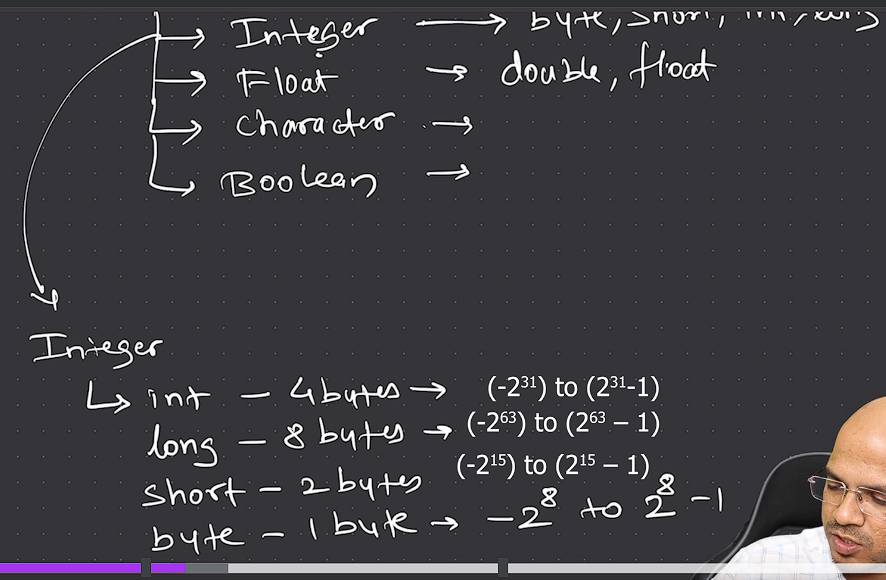 Integer → byte, short, int, long
Float → double, float
Character →
Boolean →
Integer
↳ int - 4 bytes → (-2³¹) to (2³¹-1)
long - 8 bytes → (-2⁶³) to (2⁶³ – 1)
short - 2 bytes (-2¹⁵) to (2¹⁵ – 1)
byte - 1 byte → -2⁸ to 2⁸ -1